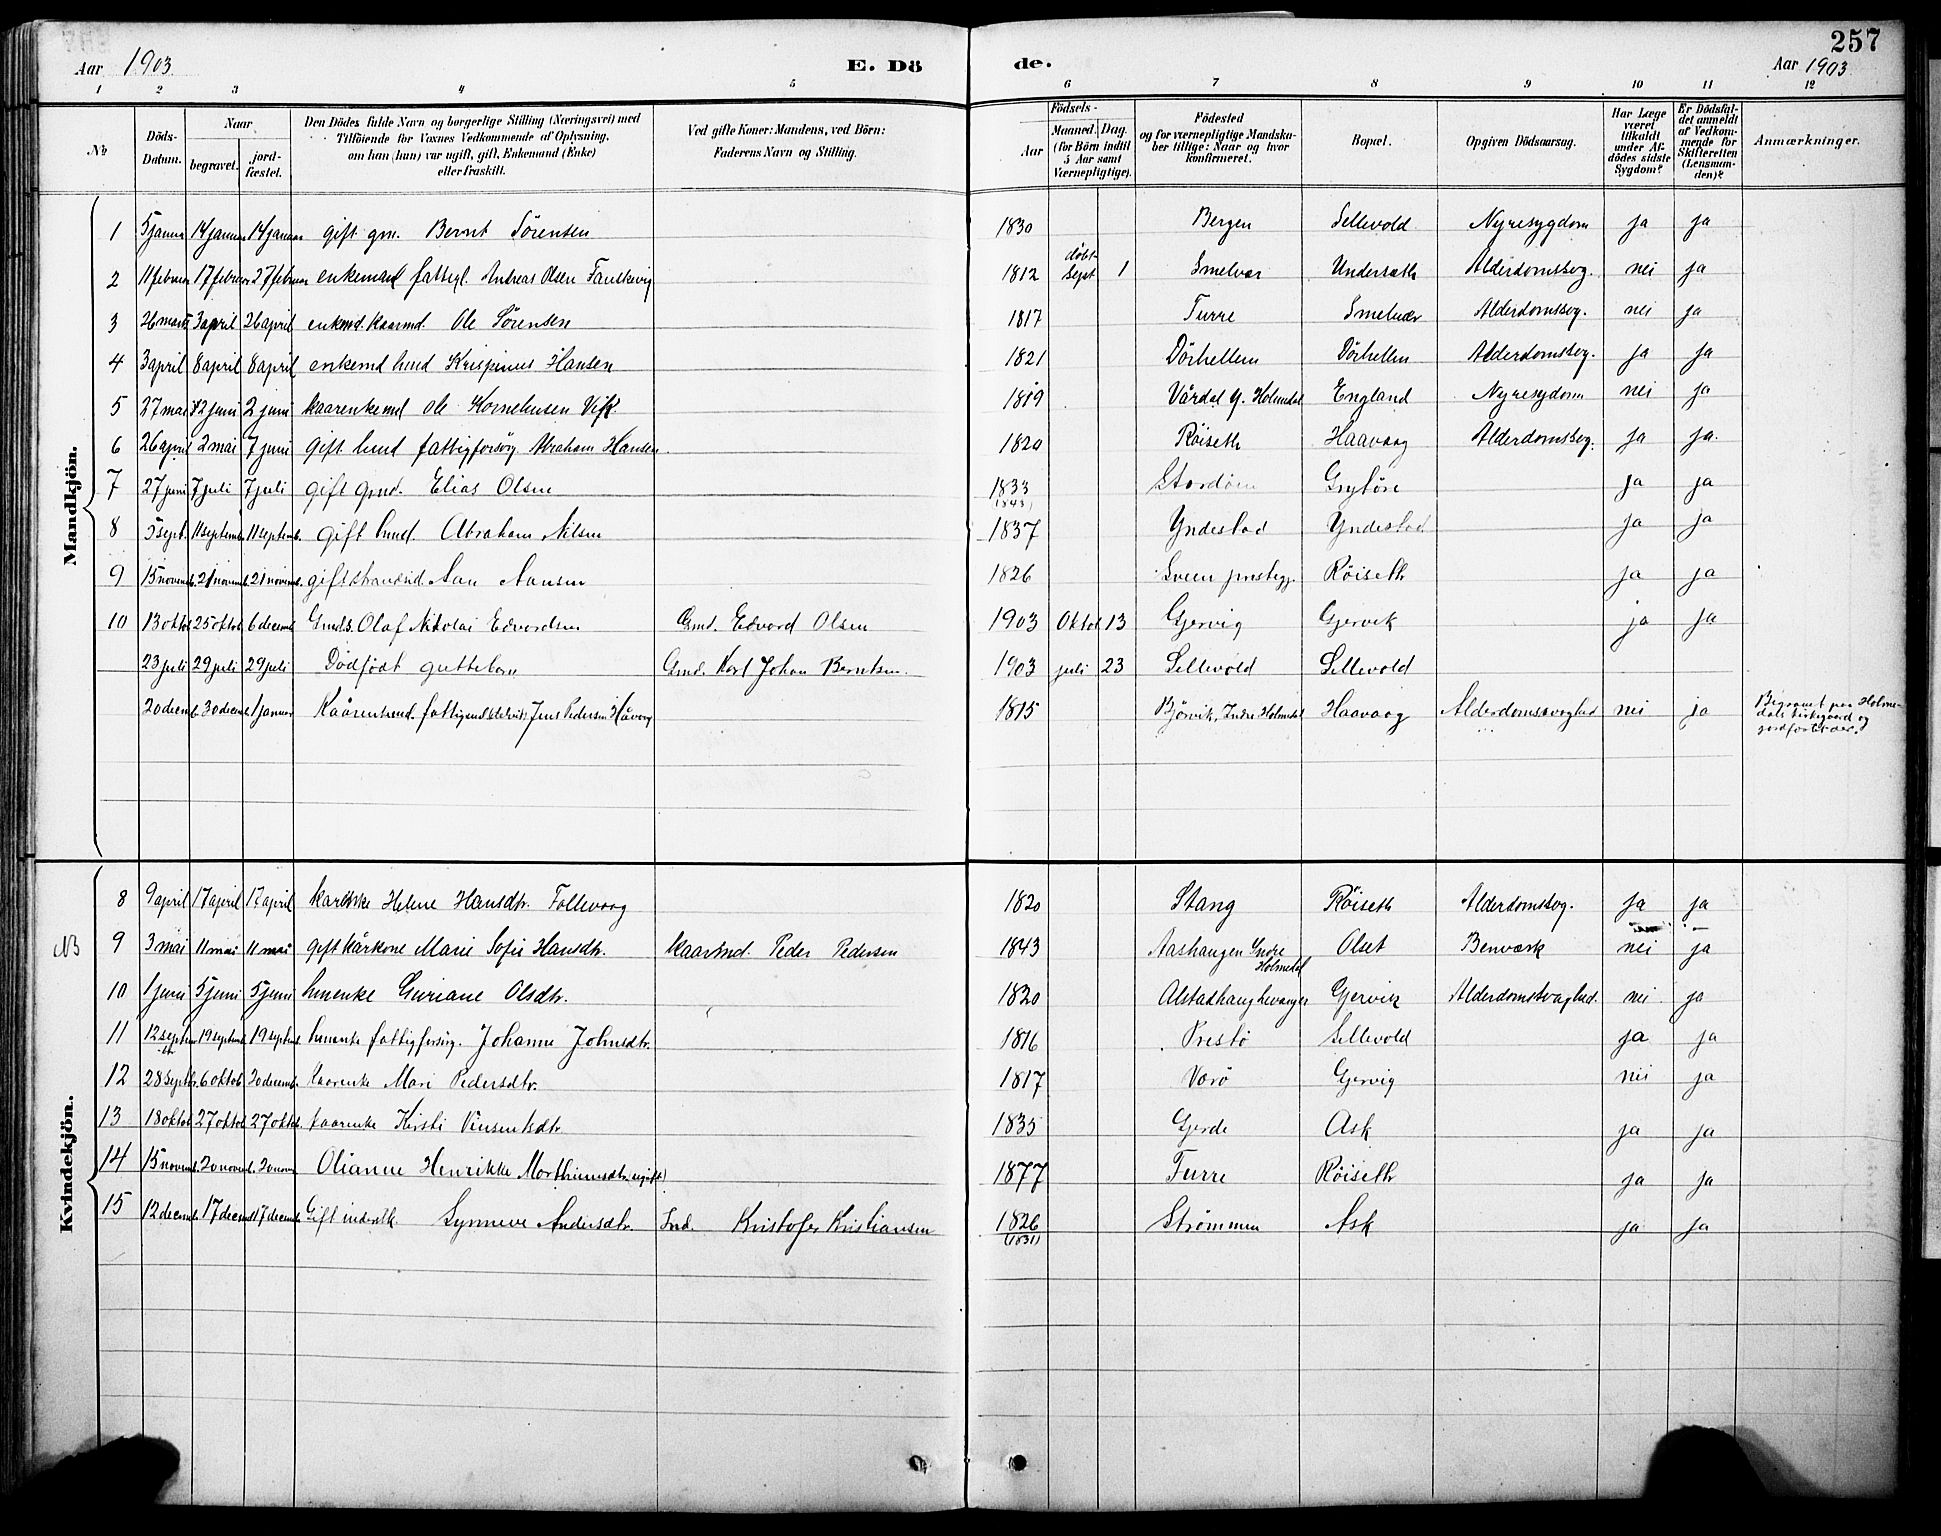 257
Aar 1903. E. Dö de. Aar 1903
1 2 3 4 5 6 7 8 9 10 11 12
№ Döds-Datum. Naar begravet. jordfæstet. Den Dödes fulde Navn og borgerlige Stilling (Næringsvei) med Tilföiende for Voxnes Vedkommende af Oplysning, om han (hun) var ugift, gift, Enkemand (Enke) eller fraskilt. Ved gifte Koner: Mandens, ved Börn: Faderens Navn og Stilling. Födsels- Aar Maaned. Dag. (for Börn indtil 5 Aar samt Værnepligtige). Födested og for værnepligtige Mandskaber tillige: Naar og hvor konfirmeret. Bopæl. Opgiven Dödsaarsag. Har Læge været tilkaldt under Afdödes sidste Sygdom? Er Dödsfaldet anmeldt af Vedkommende for Skifteretten (Lensmanden)? Anmærkninger.
Mandkjön.
1 5 januar 14 januar 14 januar gift gm. Bernt Sörensen 1830 Bergen Sellevold Nyresygdom ja ja
2 11 februar 17 februar 27 februar enkemand fattigl. Andreas Olsen Fanskevig 1812 döbt Sept 1 Smelvær Undersæth Alderdomssvag. nei ja
3 26 marts 3 april 26 april enkmd. kaarmd. Ole Sörensen 1817 Turre Smelvær Alderdomssvag. nei ja
4 3 april 8 april 8 april enkemd hmd Krispinus Hansen 1821 Dörhellen Dörhellen Alderdomssvag. ja ja
5 27 mai 2 juni 2 juni kaarenkemd Ole Kornelusen Vik. 1819 Vårdal Y. Holmedal England Nyresygdom nei ja
6 26 april 2 mai 7 juni Gift hmd fattigforsörg. Abraham Hansen 1820 Röiseth Haavaag Alderdomssvag. ja ja.
7 27 juni 7 juli 7 juli Gift gmd. Elias Olsen 1833 (1843) Grytöre ja ja
8 5 sept. 11 septemb. 11 septemb. Gift hmd Abraham Nilsen 1837 Yndestad Yndestad ja ja
9 15 novemb. 21 novemb. 21 novemb. gift strandsid. 1826 Sveen prestegj. Röiseth ja ja
10 13 oktob 25 oktob 6 decemb Gmds. Olaf Nikolai Edvardsen Gmd. Edvard Olsen 1903 Oktob 13 Gjervig Gjervik ja ja
23 juli 29 juli 29 juli Dödfödt guttebarn Gmd. Karl Johan Berntsen. 1903 juli 23 Sellevold Sellevold
20 decemb. 30 decemb. 1 januar Jens Pedersen Håvaag 1815 Björvik, Indre Holmedal Haavaag Alderdomssvaghed nei ja Begravet paa Holmedals kirkegaard og jordfæstet der.
Kvindekjön.
8 9 april 17 april 17 april Helene Hansdtr. Follevaag 1820 Stang Röiseth Alderdomssvag. ja ja
NB 9 3 mai 11 mai 11 mai gift kårkone Marie Sofie Hansdtr. kaarmd. Peder Pedersen 1843 Aashaugen Indre Holmedal Olset Benværk nei ja
10 1 juni 5 juni 5 juni hmenke Guriane Olsdtr. 1820 Gjervik Alderdomssvaghed. nei ja
11 12 septembr 19 septemb. 19 septemb. hmenke fattigforsörg. Johanne Johnsdtr. 1816 Prestö Sellevold ja ja
12 28 septbr. 6 oktob 20 decemb. kaarenke Mari Pedersdtr. 1817 Værö Gjervig nei ja
13 18 oktob 27 oktob 27 oktob. kaarenke Kirsti Vinsentsdtr 1835 Gjerde Ask ja ja
14 15 novemb. 20 novemb. 20 novem Olianne Henrikke Morthinusdtr. (ugift) 1877 Turre Röiseth ja ja
15 12 decemb. 17 decemb 17 decemb Gift inderstk. Synneve Andersdtr. Ind. Kristofer Kristiansen 1826 (1831) Strömmen Ask ja ja